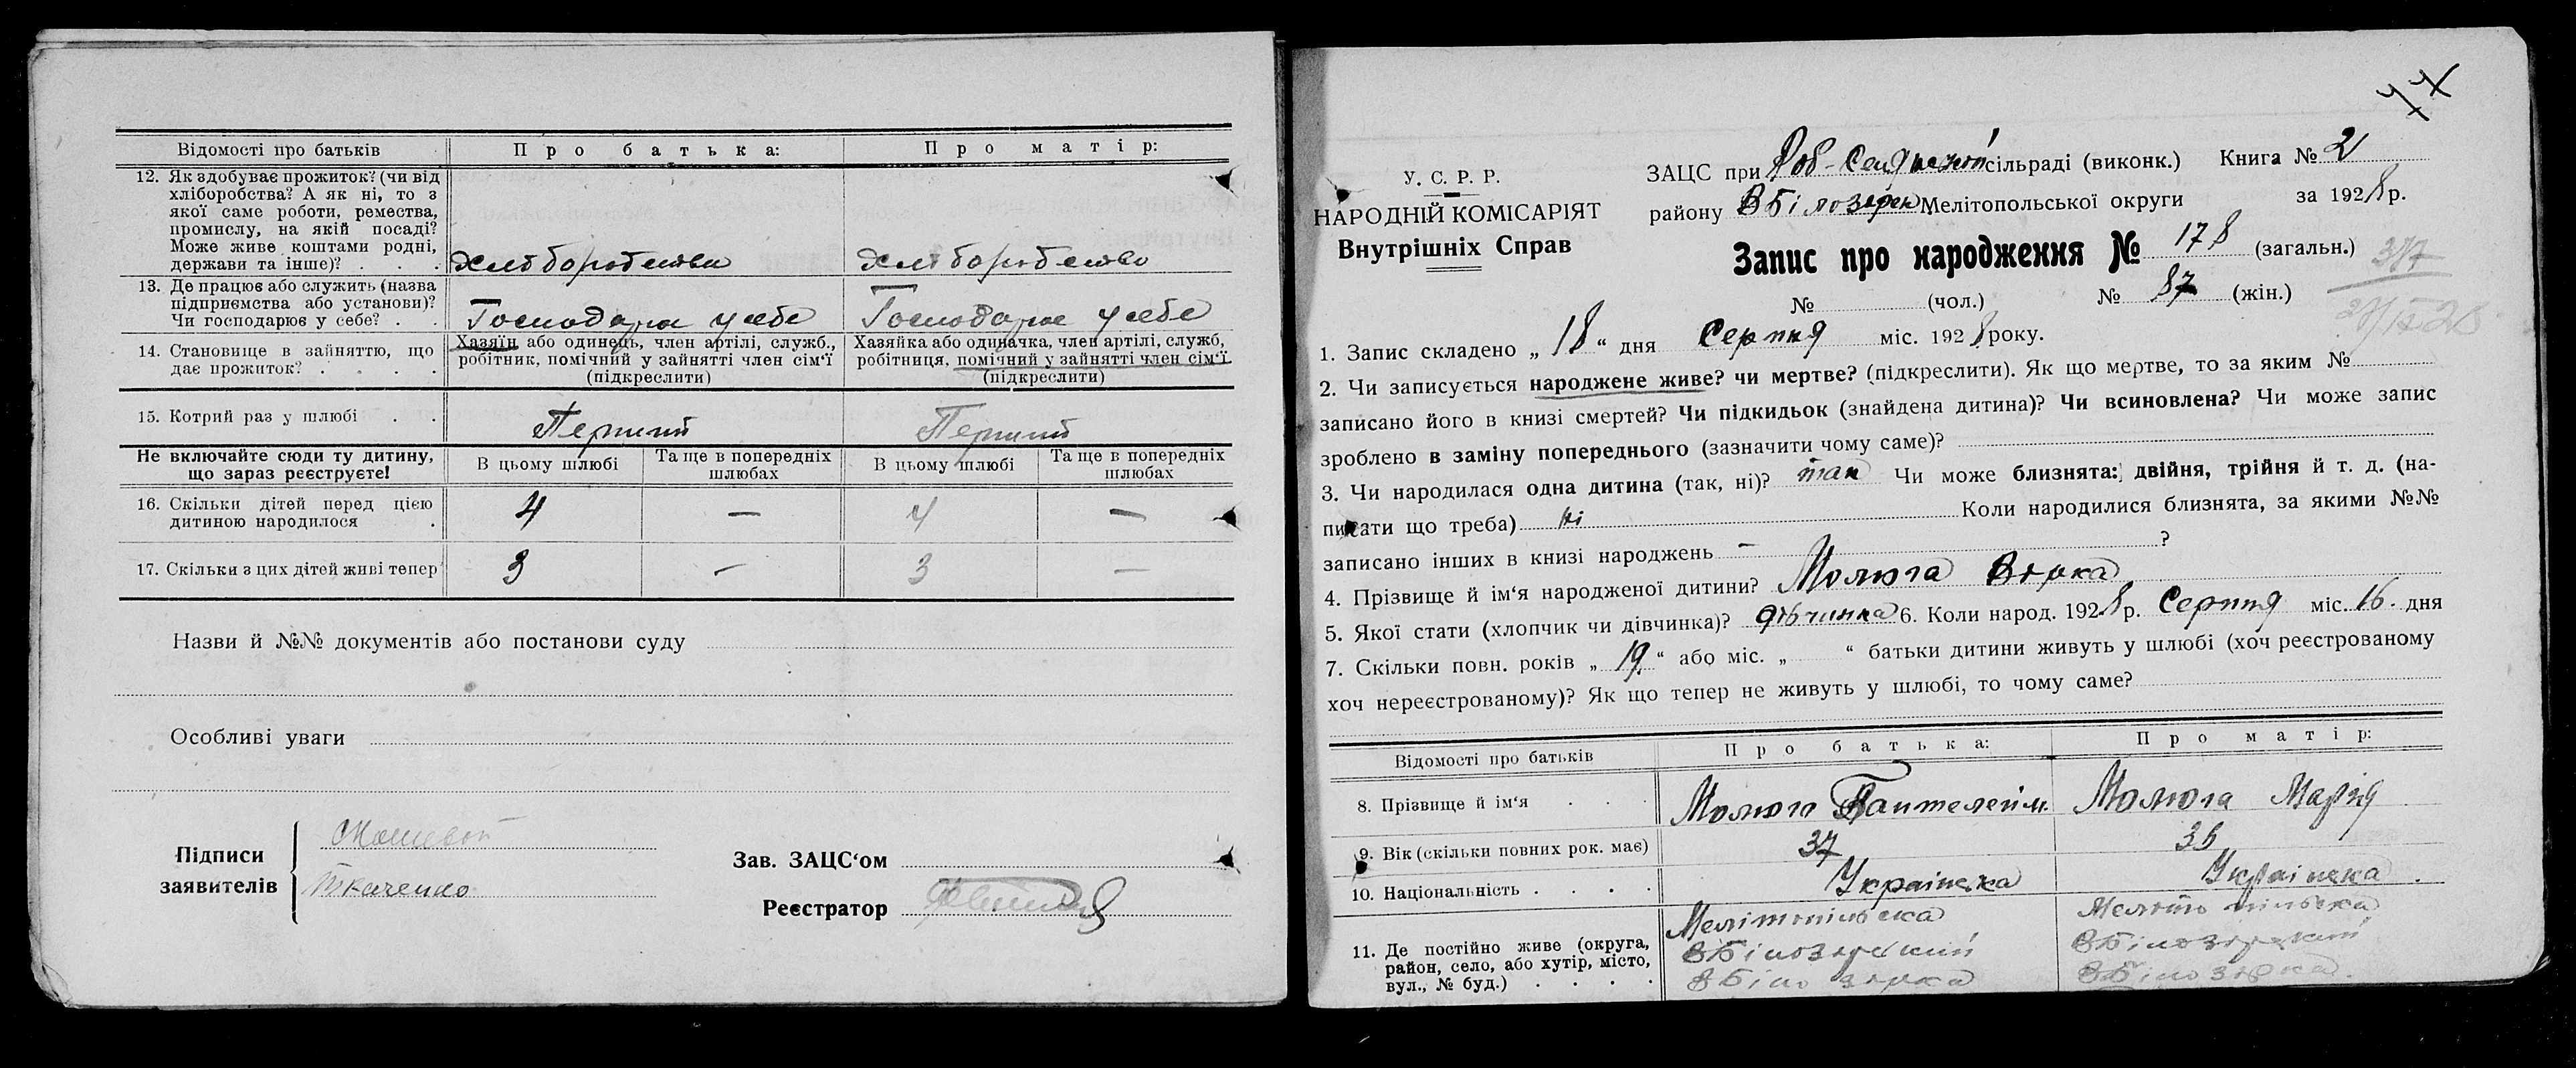 Відомості про батьків
Про батька:
Про матір:
12. Як здобуває прожиток? (чи від
хліборобства? А як ні, то з
якої саме роботи, ремества,
промислу, на якій посаді?
Може живе коштами родні,
держави та інше)? . . .
Хліборобство
Хліборобство
13. Де працює або служить (назва
підприємства або установи)?
Чи господарює у себе? . .
Господарює у себе
Господарює у себе
14. Становище в зайняттю, що
дає прожиток? . . . .
Хазяїн або одинець, член артілі, служб.,
робітник, помічний у зайнятті член сім'ї
(підкреслити)
Хазяйка або одиначка, член артілі, служб,
робітниця, помічний у зайнятті член сім'ї.
(підкреслити)
15. Котрий раз у шлюбі . .
Перший
Перший
Не включайте сюди ту дитину,
що зараз реєструєте!
В цьому шлюбі
Та ще в попередніх
шлюбах
В цьому шлюбі
Та ще в попередніх
шлюбах
16. Скільки дітей перед цією
дитиною народилося .
4 — 4 —
17. Скільки з цих дітей живі тепер
3 — 3 —
Назви й №№ документів або постанови суду
Особливі уваги
Підписи
заявителів
Ткаченко
Зав. ЗАЦС'ом
Реєстратор
77
У. С. Р. Р.
НАРОДНІЙ КОМІСАРІЯТ
Внутрішніх Справ
ЗАЦС при сільраді (виконк.) Книга № 2
району ВБілозерськ Мелітопольської округи за 1928 р.
Запис про народження № 178 (загальн.)
№ (чол.) № 87 (жін.)
1. Запис складено „18“ дня Серпня міс. 1928 року.
2. Чи записується народжене живе? чи мертве? (підкреслити). Як що мертве, то за яким №
записано його в книзі смертей? Чи підкидьок (знайдена дитина)? Чи всиновлена? Чи може запис
зроблено в заміну попереднього (зазначити чому саме)?
3. Чи народилася одна дитина (так, ні)? так Чи може близнята: двійня, трійня й т. д. (на-
писати що треба) ні Коли народилися близнята, за якими №№
записано інших в книзі народжень — ?
4. Прізвище й ім'я народженої дитини? Малюга Вірка
5. Якої стати (хлопчик чи дівчинка)? дівчинка 6. Коли народ. 1928 р. Серпня міс. 16. дня
7. Скільки повн. років „19“ або міс. „ “ батьки дитини живуть у шлюбі (хоч реєстрованому
хоч нереєстрованому)? Як що тепер не живуть у шлюбі, то чому саме?
Відомості про батьків
Про батька:
Про матір:
8. Прізвище й ім'я . . .
Малюга Пантелейм.
Малюга Марія
9. Вік (скільки повних рок. має)
37
35
10. Національність . . . .
Українська
Українка
11. Де постійно живе (округа,
район, село, або хутір, місто,
вул., № буд.) . . . .
Мелітопільська
ВБілозірський
ВБілозірка
Мелітопільська
ВБілозірський
ВБілозірка.